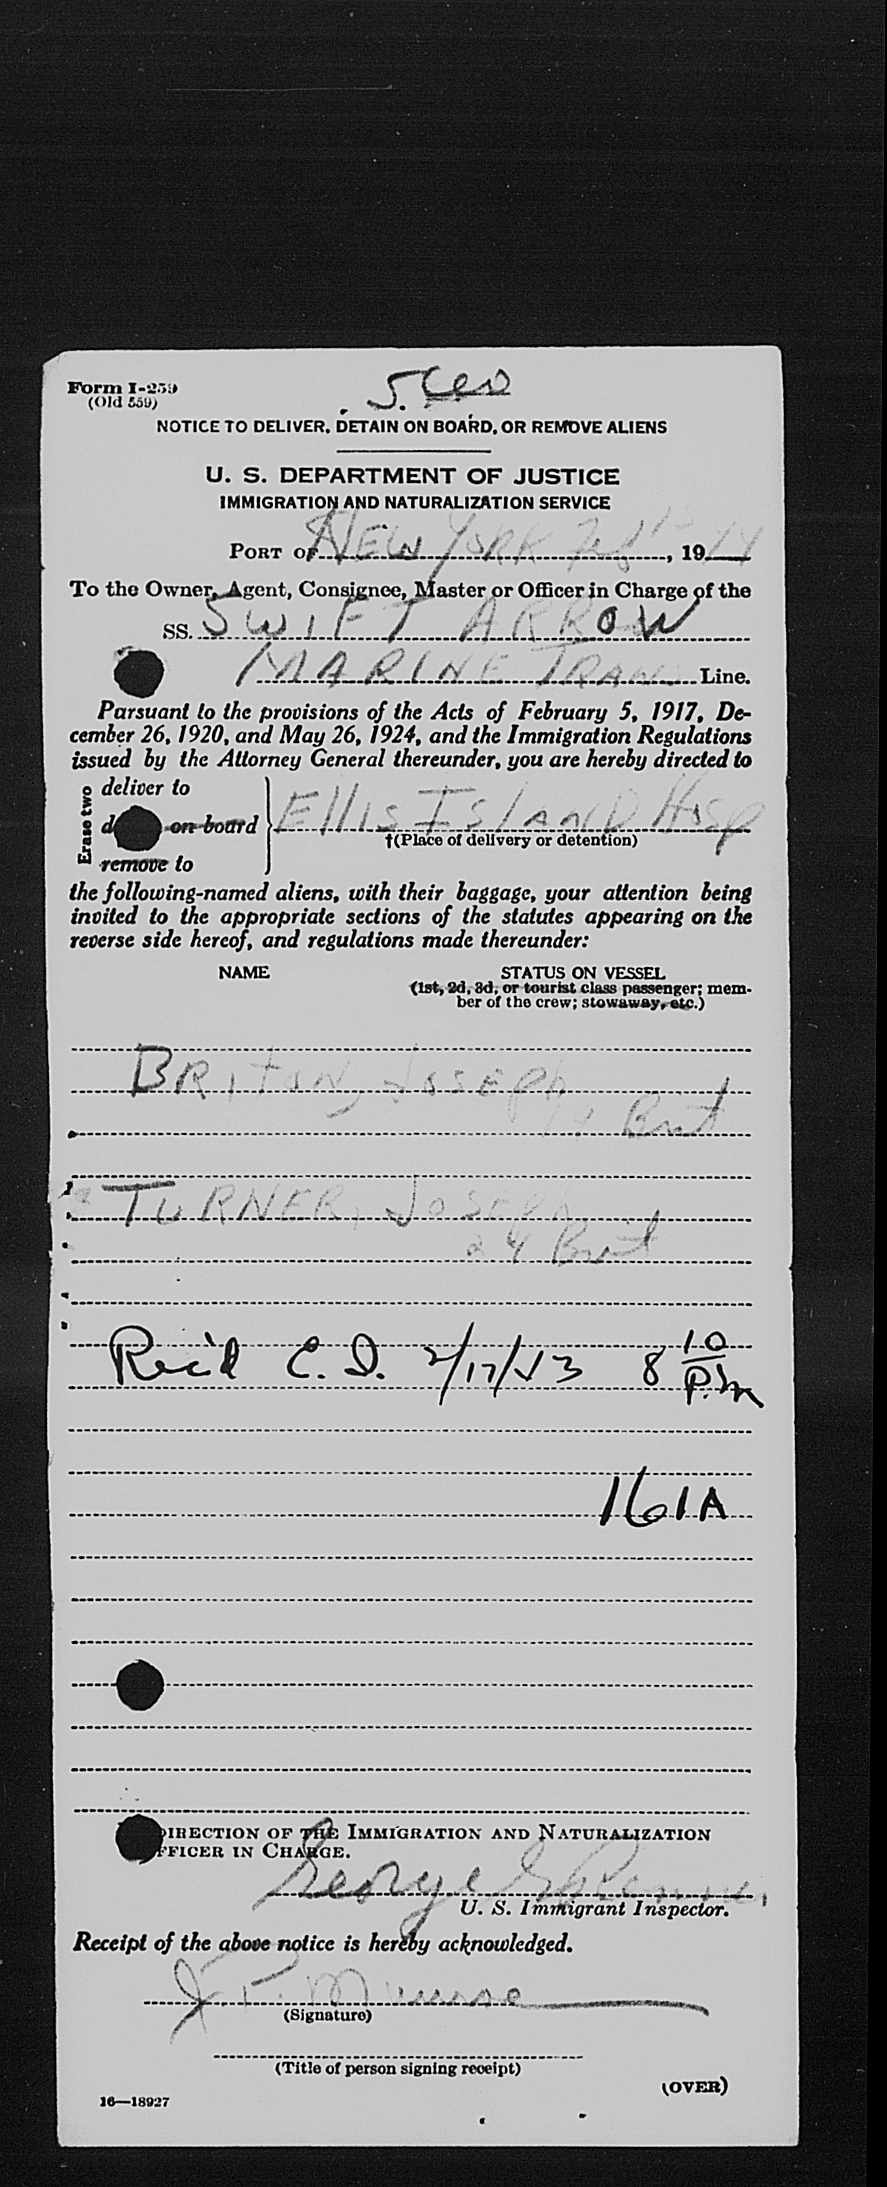 Form I-259
(Old 559)
NOTICE TO DELIVER, DETAIN ON BOARD, OR REMOVE ALIENS
U. S. DEPARTMENT OF JUSTICE
IMMIGRATION AND NATURALIZATION SERVICE
PORT OF NEW YORK Feb 19
To the Owner, Agent, Consignee, Master or Officer in Charge of the
SS. SWIFT ARROW
MARINE TRAN Line.
Pursuant to the provisions of the Acts of February 5, 1917, De-
cember 26, 1920, and May 26, 1924, and the Immigration Regulations
issued by the Attorney General thereunder, you are hereby directed to
Erase two
deliver to
on board
remove to
Ellis Island Hosp
†(Place of delivery or detention)
the following-named aliens, with their baggage, your attention being
invited to the appropriate sections of the statutes appearing on the
reverse side hereof, and regulations made thereunder:
NAME STATUS ON VESSEL
(1st, 2d, 3d, or tourist class passenger; mem-
ber of the crew; stowaway, etc.)
BRITON, JOSEPH
Brit
TURNER, JOSEPH
24 Brit
Rec'd 8 10 P.M
161A
DIRECTION OF THE IMMIGRATION AND NATURALIZATION
OFFICER IN CHARGE.
George
U. S. Immigrant Inspector.
Receipt of the above notice is hereby acknowledged.
(Signature)
(Title of person signing receipt)
(OVER)
16—18927